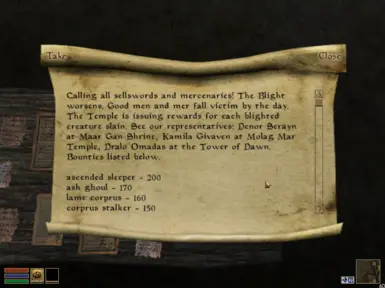 Take
Close
Calling all sellswords and mercenaries! The Blight
worsens. Good men and mer fall victim by the day.
The Temple is issuing rewards for each blighted
creature slain. See our representatives: Denor Serayn
at Maar Gan Shrine, Kamila Givaven at Molag Mar
Temple, Dralo Omadas at the Tower of Dawn.
Bounties listed below.
ascended sleeper - 200
ash ghoul - 170
lame corprus - 160
corprus stalker - 150